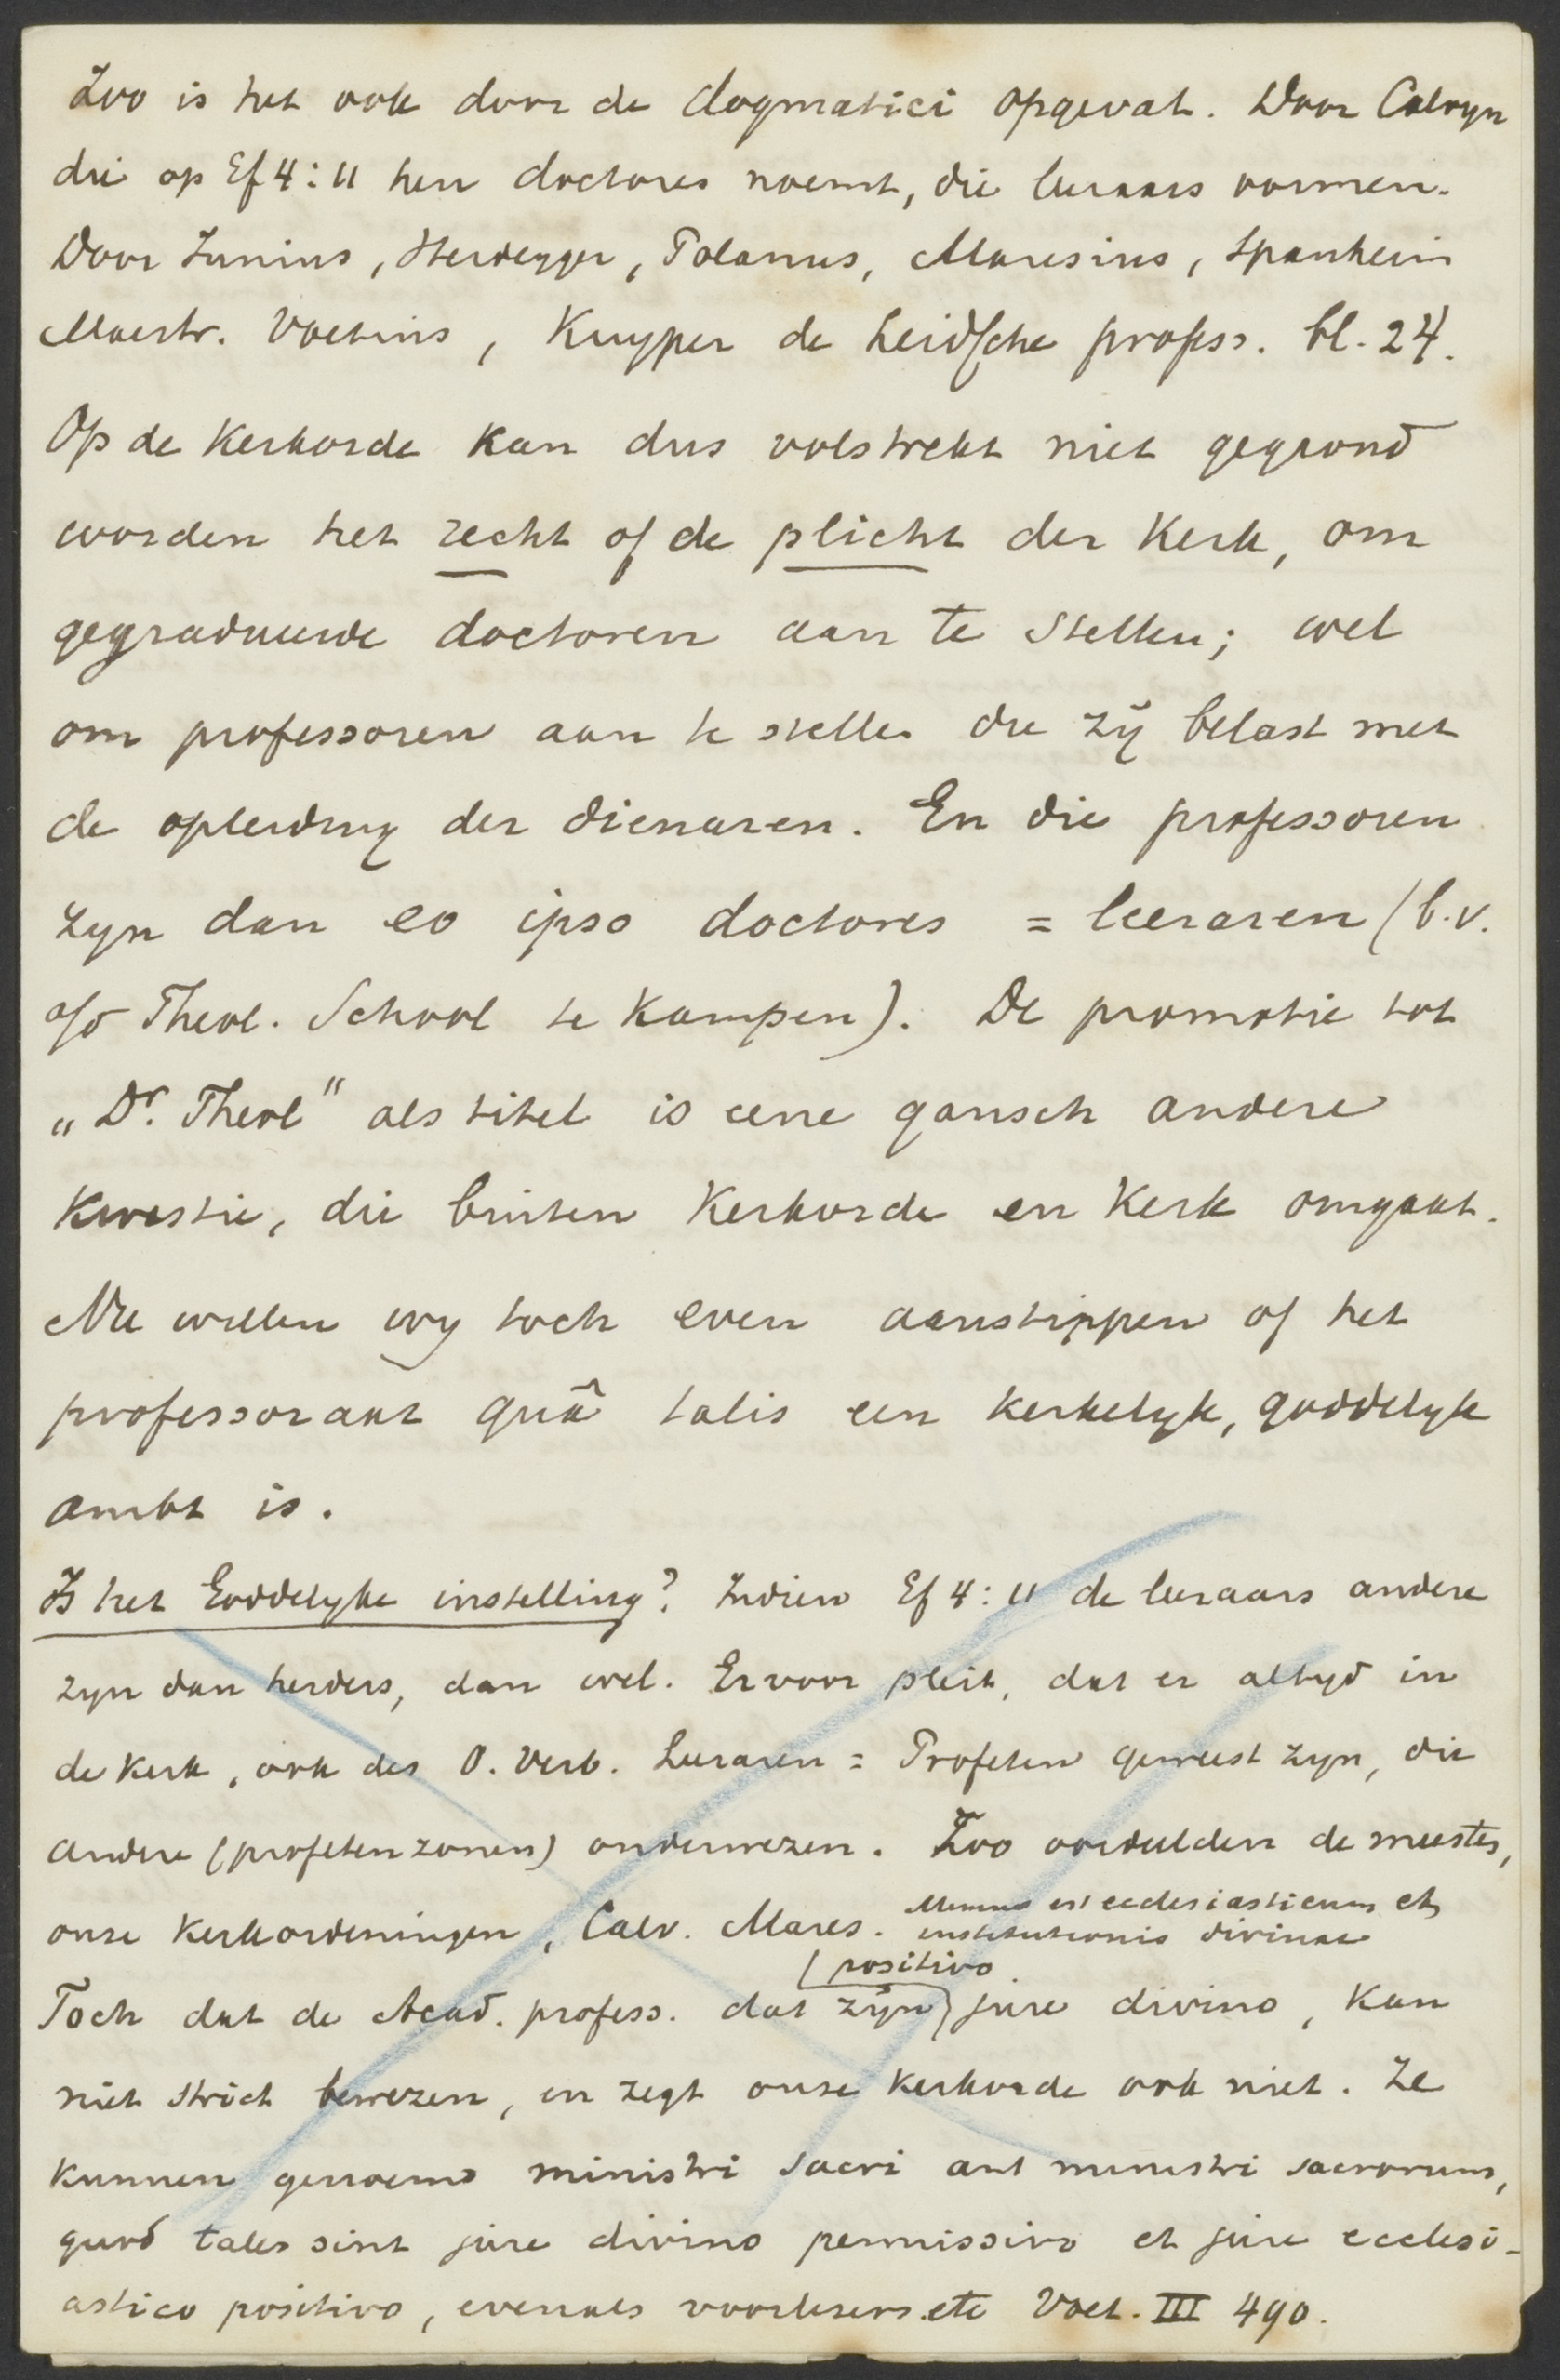 Zoo is het ook door de dogmatici opgevat. Door Calvyn
die op Ef 4:11 hen doctores noemt, die leeraars vormen.
Door Junius, Heidegger, Polanus, Maresius, Spanheim
Maestr. Voetius, Kuyper de Leidsche profess. bl. 24.
Op de Kerkorde kan dus volstrekt niet gegrond
worden het recht of de plicht der Kerk, om
gegradueerde doctoren aan te stellen; wel
om professoren aan te stellen die zij belast met
de opleiding der dienaren. En die professoren
zyn dan eo ipso doctores = leeraren (b.v.
a/d Theol. School te Kampen). De promotie tot
„Dr. Theol" als titel is eene gansch andere
kwestie, die buiten Kerkorde en Kerk omgaat.
Nu willen wy toch even aanstippen of het
professoraat quâ talis een kerkelyk, goddelyk
ambt is.
Is het Goddelyke instelling? Indien Ef 4:11 de leeraars andere
zyn dan herders, dan wel. Ervoor pleit, dat er altyd in
de Kerk, ook des O. Verb. Leeraren = Profeten geweest zyn, die
andere (profetenzonen) onderwezen. Zoo oordeelden de meesten,
onze Kerkordeningen, Calv. Mares. Munus est ecclesiasticum et
institutionis divinae
(positivo
Toch dat de Acad. profess. dat zijn) jure divino, kan
niet strict bewezen, en zegt onze Kerkorde ook niet. Ze
kunnen genoemd ministri sacri aut ministri sacrorum,
quod tales sint jure divino permissivo et jure ecclesi-
astico positivo, evenals voorlezers etc Voet. III 490.